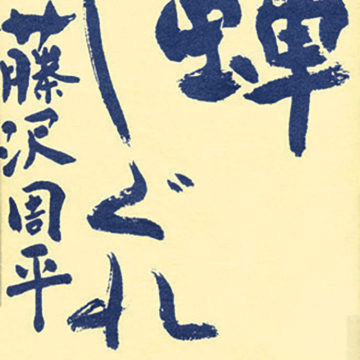 蝉
しぐれ
藤沢周平